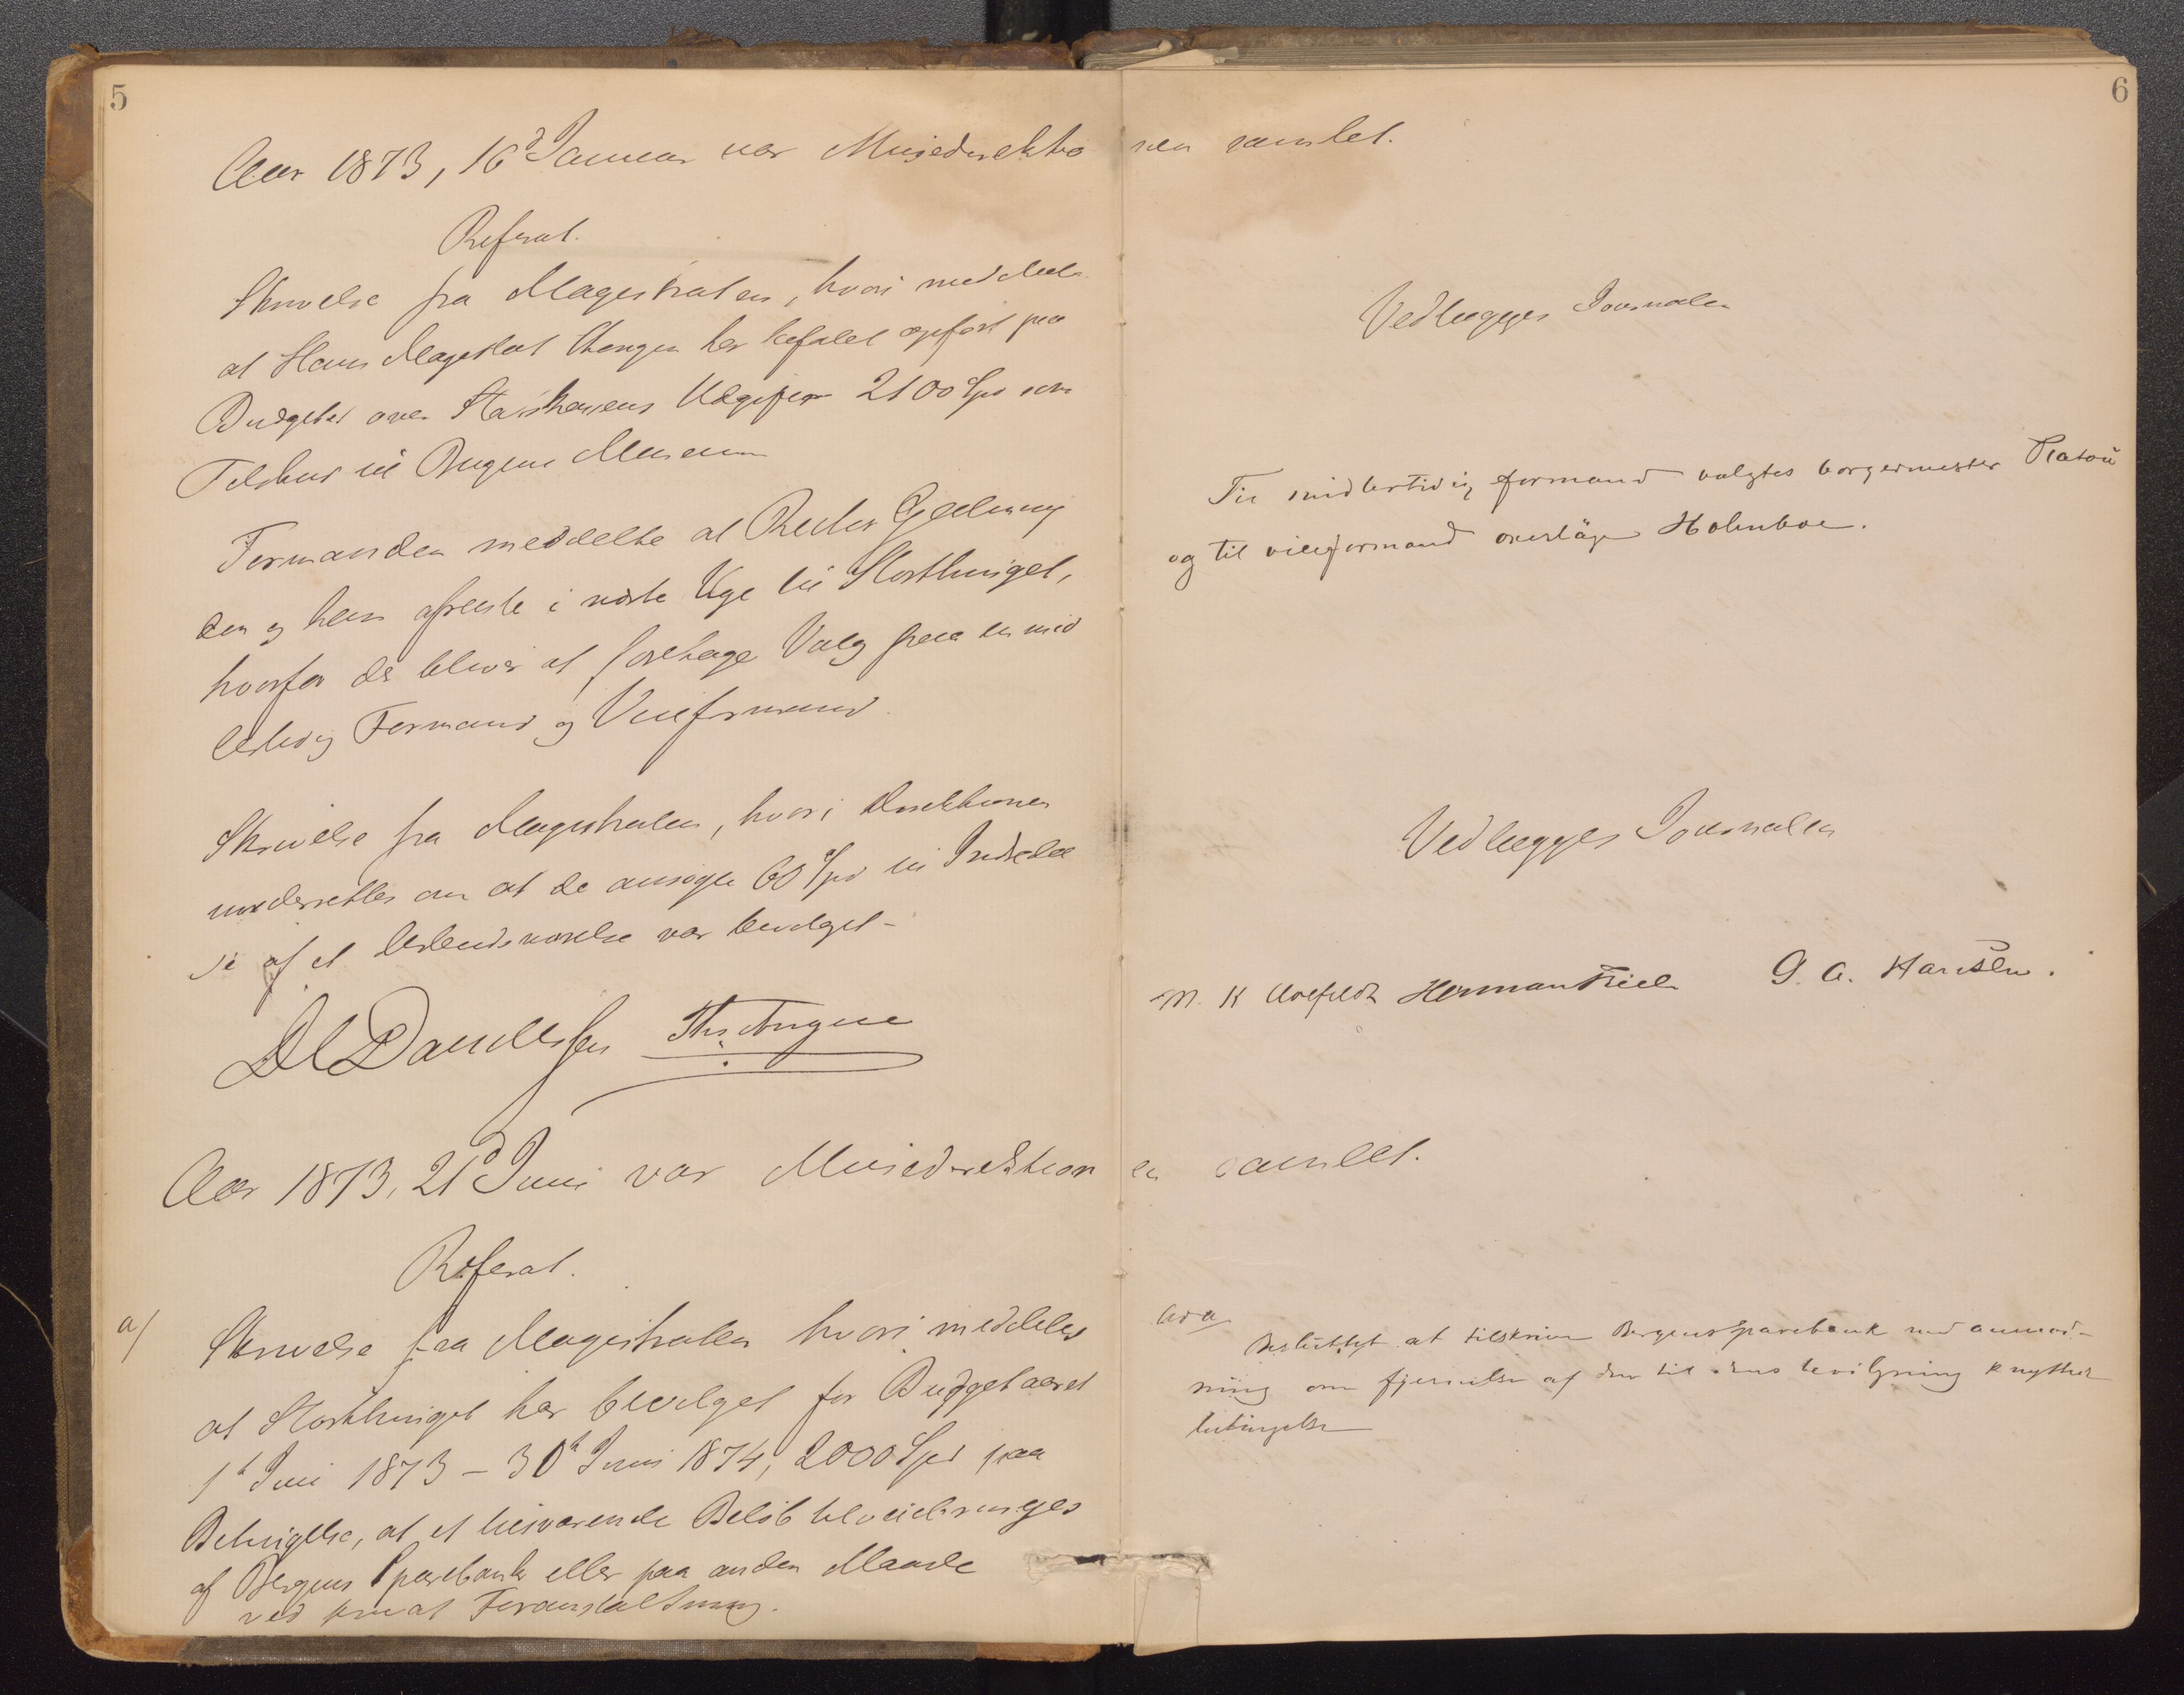 5
Aar 1873, 16d Januar var Musedirektio
Referat.
Skrivelse fra Magistraten, hvori meddeles
at Hans Majestæt Kongen har befalet opført paa
Budgetet over Statskassens Udgifter 2100 Spd som
Tilskud til Bergens Museum
Formanden meddelte at Rector
den og han afreiste i næste Uge til Storthinget,
hvorfor der bliver at foretage Valg paa en mid
lertidig Formand og Viceformand.
Skrivelse fra Magistraten, hvori Direktionen
underrettes om at de ansøgte 60 Spd til Indkøb
af et var bevilget -
DC Danielssen
Aar 1873, 21d Juni var Musedirektion
Referat.
a/
Skrivelse fra Magistraten hvori meddeles
at Storthinget har bevilget for Budgetaaret
1t Juli 1873 - 30t Juni 1874, 2000 Spd paa
Betingelse, at et tilsvarende Beløb tilveiebringes
af Bergens Sparebank eller paa anden Maade
ved privat Foranstaltning.
6
nen samlet.
Vedlægges Journalen
Til midlertidig formand valgtes borgermester Platou
og til viceformand overlæge Holmboe.
Vedlægges Journalen
M. K Herman Friele G. A. Hansen.
en samlet.
Ad a
Besluttet at tilskrive Bergens Sparebank med anmod-
ning om fjernelse af den til dens bevilgning knyttede
betingelse